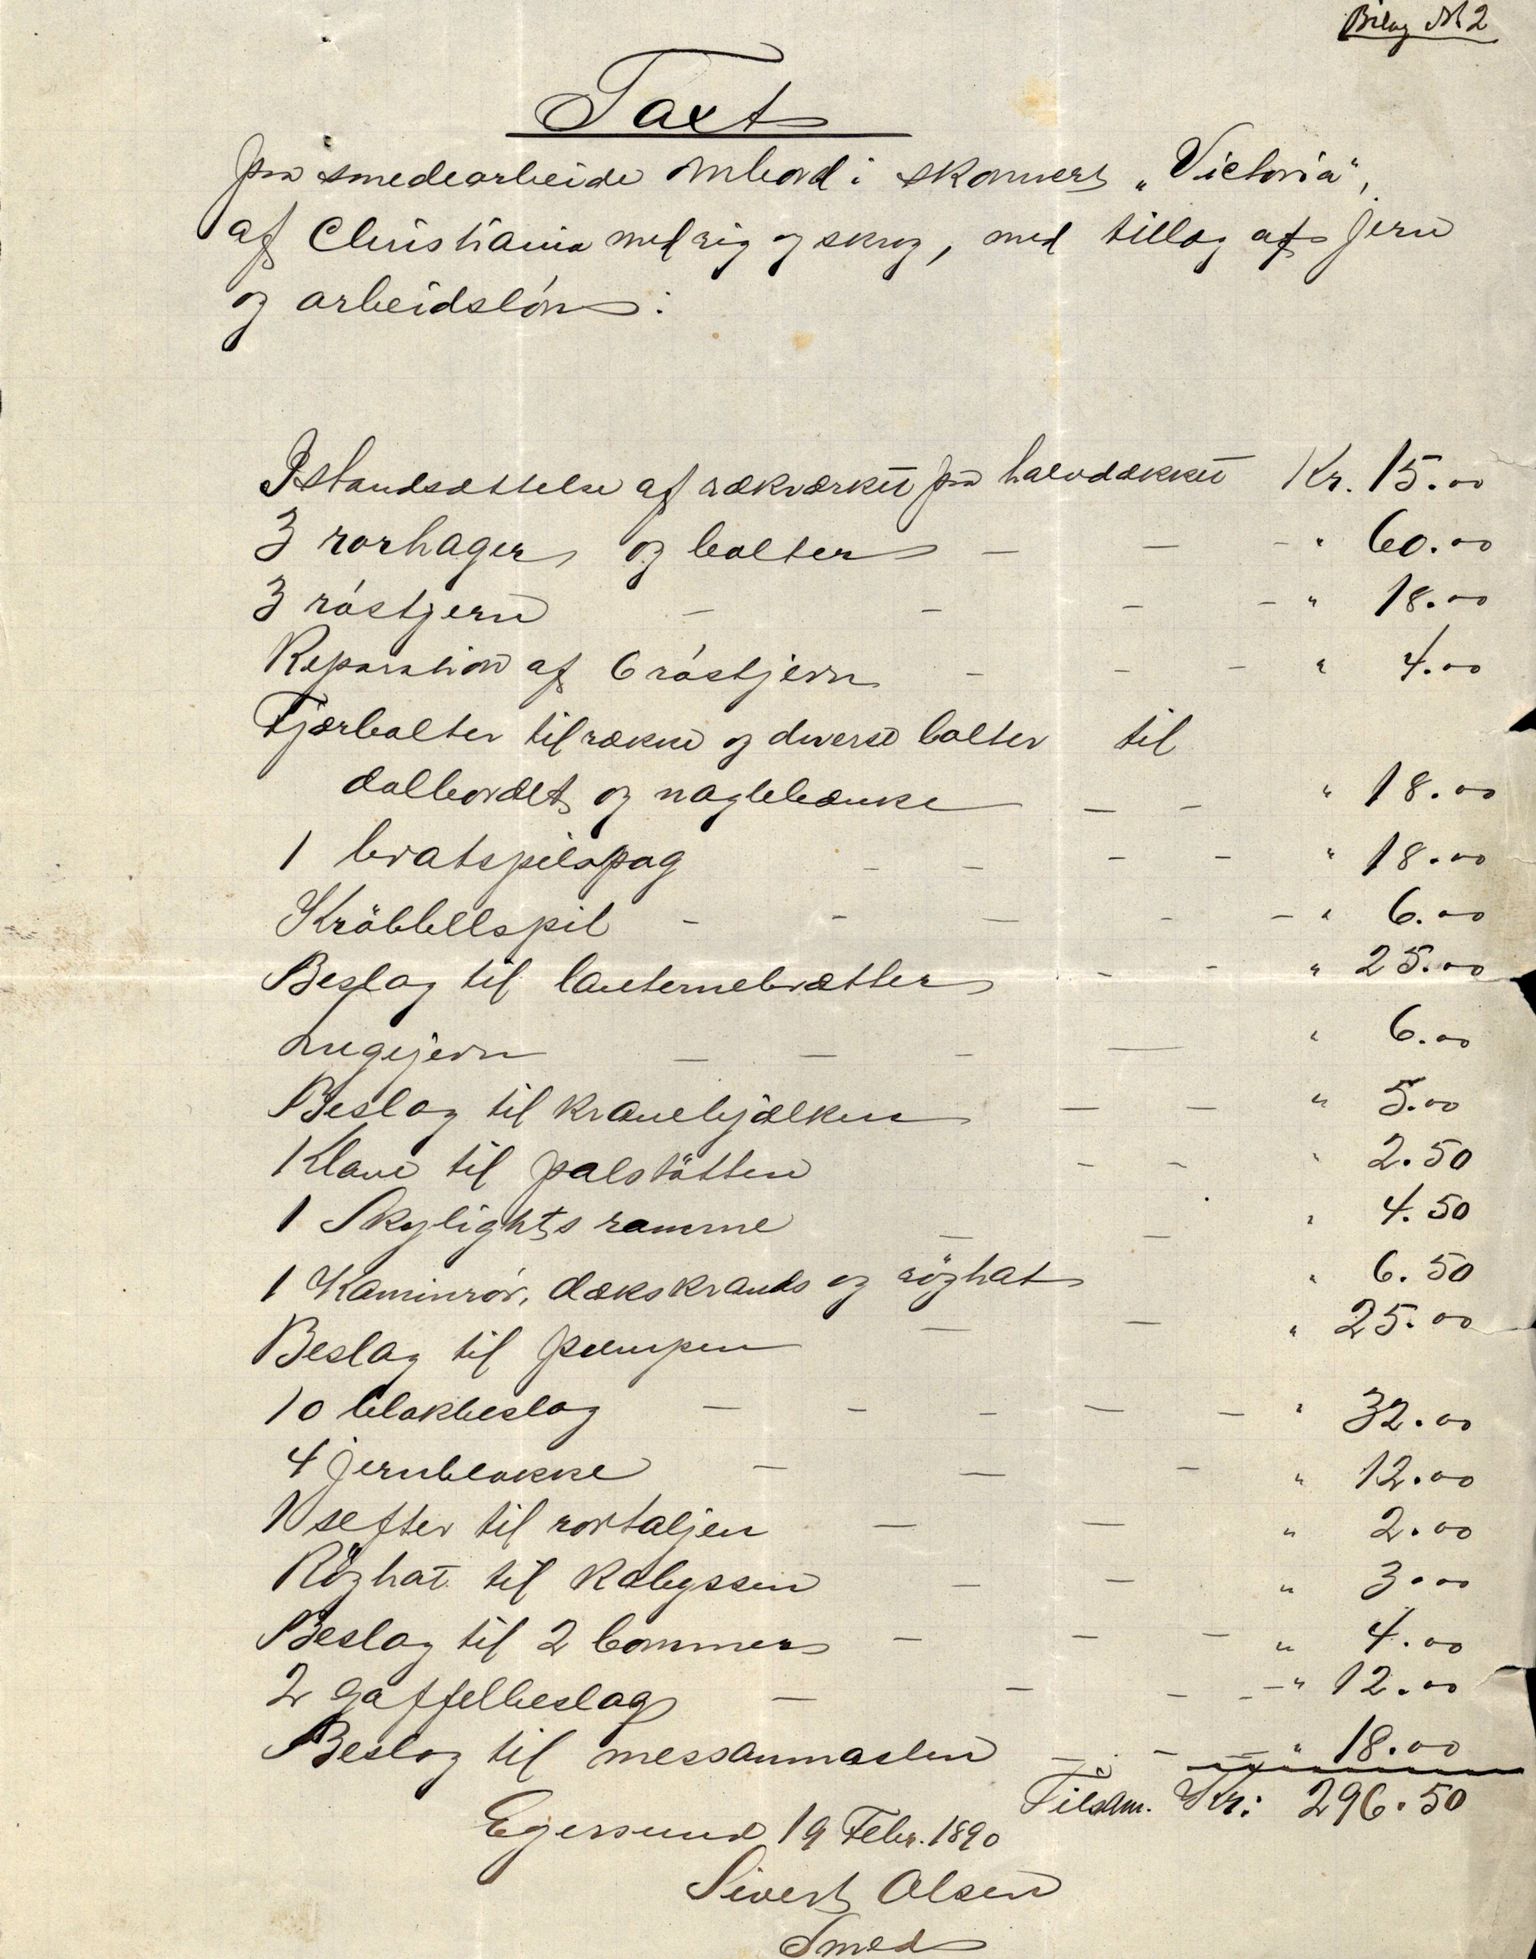 Bilag № 2
Taxt
paa smedearbeide ombord i skonnert „Victoria",
af Christiania med rig og skrog, med tillæg af jern
og arbeidslön:
Istandsættelse af rækværket paa halvdækket Kr. 15.00
3 rorhager og bolter — — - " 60.00
3 röstjern — — — - " 18.00
Reparation af 6 röstjern - — - " 4.00
Fjærbolter til række og diverse bolter til
dolbordet og naglebænke — — " 18.00
1 bratspilspag - — — - " 18.00
Kröbbelspil - - — - - " 6.00
Beslag til lanternebrætter - - " 25.00
Lugejern — — - — " 6.00
Beslag til kranebjælken — — " 5.00
1 Klave til palstötten - - " 2.50
1 Skylights ramme — — " 4.50
1 Kaminrör, dækskrands og röghat " 6.50
Beslag til pumpen — — " 25.00
10 blokbeslag — - - — - " 32.00
4 jernblokke — — - " 12.00
1 sefter til rortaljen — — " 2.00
Röghat til kabyssen — — " 3.00
Beslag til 2 bommer — — - " 4.00
2 gaffelbeslag — — - - " 12.00
Beslag til messanmasten — - — " 18.00
Tilsam. Kr: 296.50
Egersund 19 Febr. 1890
Sivert Olsen
Smed